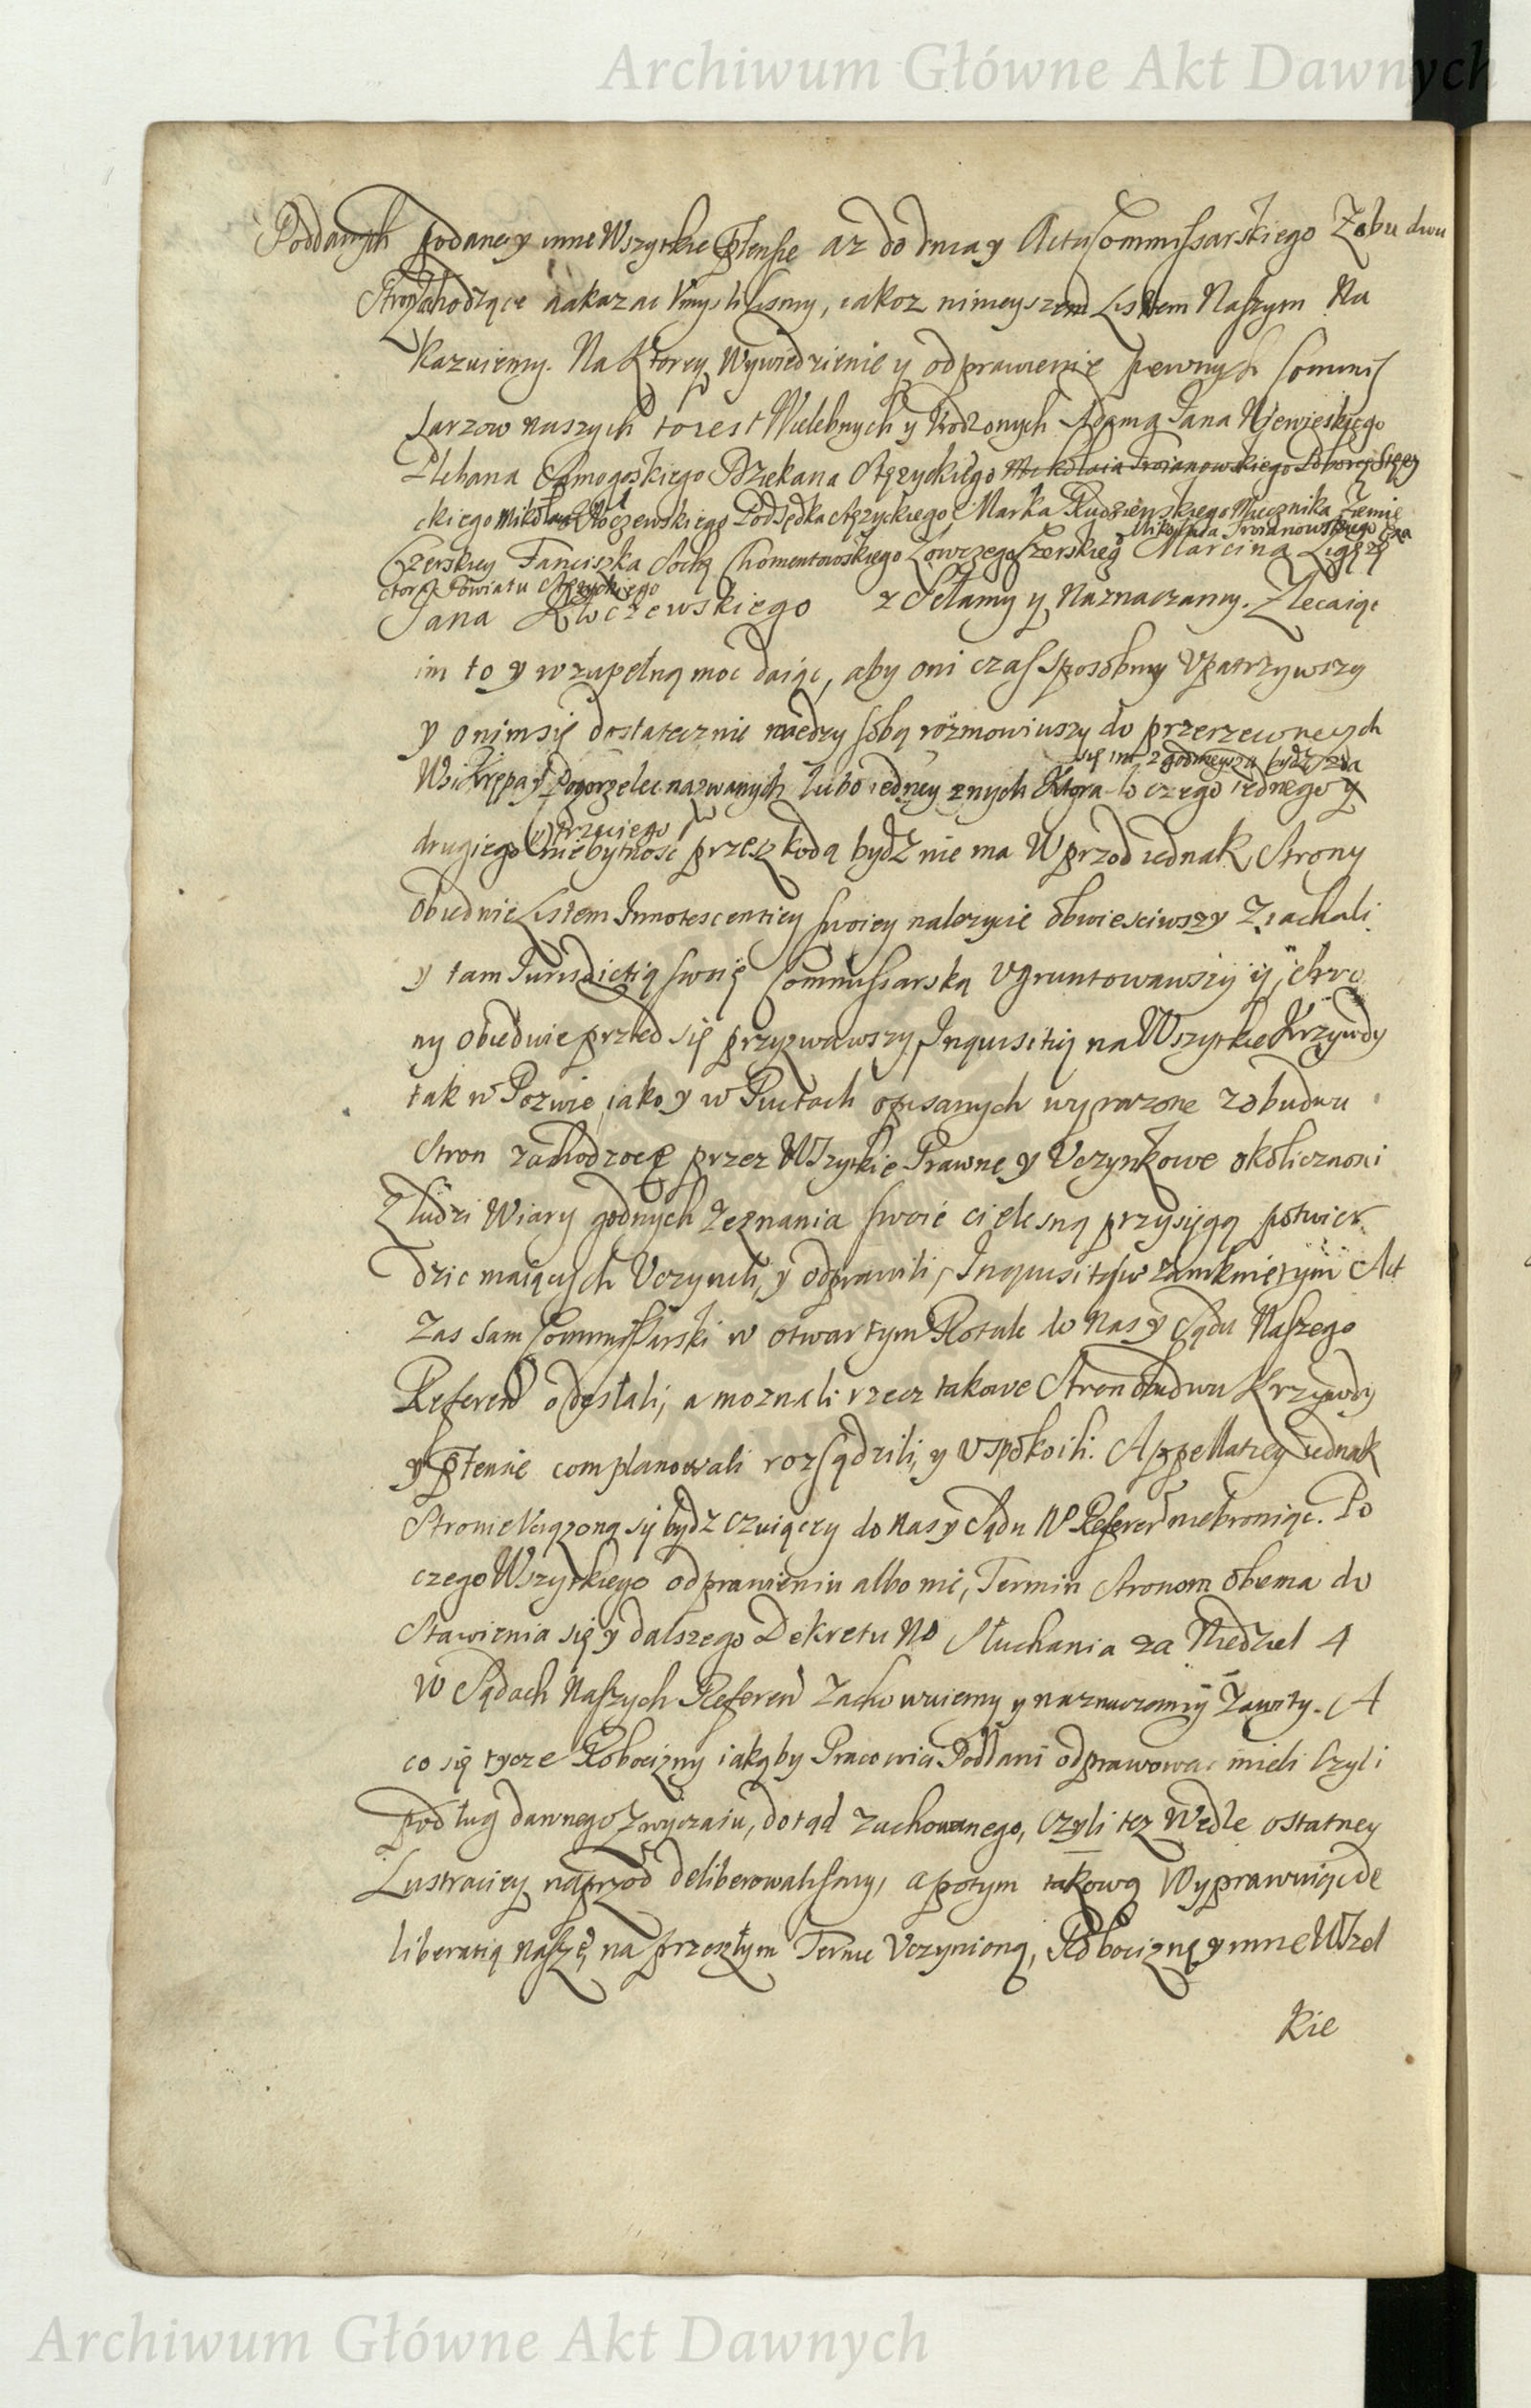 Archiwum Główne Akt Dawnych
Poddanych podane y inne Wszytkie ptensie az do dnia y Actu Commissarskiego Zobu dwu
Stron zachodzące nakazac Vmyslilismy, iakoz ninieyszem Listem Naszym Na
kazuiemy. Na Ktorey Wywiedzienie y odprawienie pewnych Commis
sarzow naszych to iest Wielebnych y Vrodzonych Adama Jana
Plebana Dziekana Stęzyckiego Mikołaia Troianowskiego Poborcę Stęzy
ckiego Mikołaia Kłoczewskiego Podsędka Stęzyckiego, Marka Rudzienskiego Miecznika Ziemie
Mikołaia Troianowskiego Exa
Czerskiey Fanciszka Sochę Chomentowskiego Łowczego Czerskieg Marcina Ligęzę
ctora Powiatu Stęzyckiego
Jana Kłoczewskiego z Sełamy y Naznaczamy. Zlecaiąc
im to y w zupełną moc daiąc, aby oni czas sposobny Vpatrzywszy
y onim się dostatecznie miedzy sobą rozmowiwszy do przerzeconych
się im zgodnieysza bydz zda
Wsi Krępa y Pogorzelec nazwanych lubo iedney znych Ktora lo czego iednego y
y trzeciego
drugiego niebytnosc przeszkodą bydz nie ma Wprzod iednak Strony
obiedwie Listem Innotescentiey swoiey nalezycie obwiesciwszy Ziachali
y tam Jurisdictią swoię Commissarską Vgruntowawszy y, Stro
ny obiedwie przed się przyzwawszy Inquisitią na Wszytkie Krzywdy
tak w Pozwie, iako y w Puctach opisanych wyrazone zobudwu
Stron zachodzące przez Wszytkie Prawne y Vczynkowe okolicznosci
Z ludzi Wiary godnych Zeznania swoie cielesną przysięgą potwier
dzic maiących Vczynili, y odprawili, Inquisitią w zamknietym Act
zas sam Commissarski w otwartym Rotule do Nas y Sądu Naszego
Referen odesłali, a moznali rzecz takowe Stron obudwu Krzywdy
y ptensie complanowali rozsądzili, y Vspokoili. Appellatiey iednak
Stronie Vciązoną się bydz czuiączy do Nas y Sądu N Referen niebroniąc. Po
czego Wszytkiego odprawieniu albo nie, Termin Stronom obiema do
Stawienia się y dalszego Dekretu No Słuchania za Niedziel 4
W Sądach Naszych Referen Zachowuiemy y naznaczamy Zawity. A
co się tycze Robocizny iakąby Pracowici Poddani odprawowac mieli Czyli
podług dawnego Zwyczaiu, dotąd zachowanego, czyli tez Wedle ostatney
Lustraciey naprzod deliberowalismy, a potym takową Wyprawuiąc de
liberatią naszę, na przeszłym Termie Vczynioną, Robociznę y inne Wszel
kie
Archiwum Główne Akt Dawnych